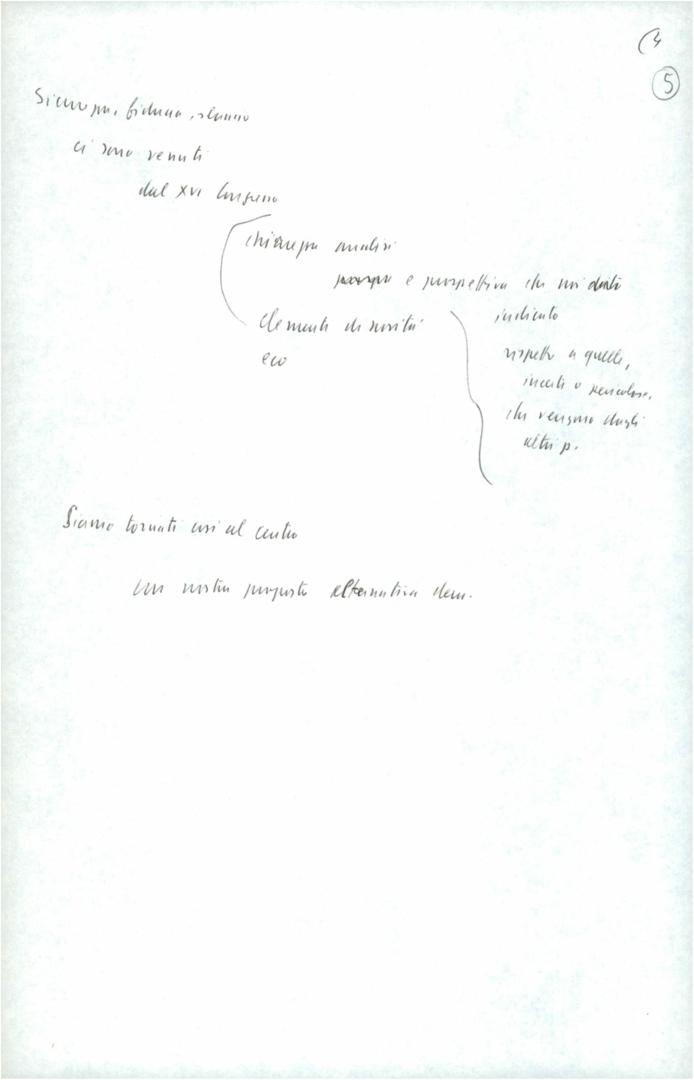 5
Sicurezza, fiducia, slancio
ci sono venuti
dal XVI Congresso
chiarezza analisi
e prospettiva che noi
indicato
elementi di novità
rispetto a quelle,
eco
incerte o pericolose,
che vengono dagli
altri p.
Siamo tornati così al centro
con nostra proposta alternativa dem.